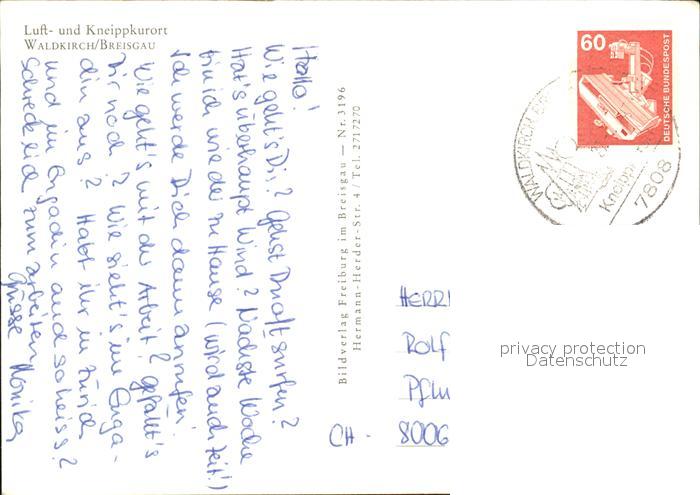 Luft- und Kneippkurort
WALDKIRCH/BREISGAU
Hallo!
Wie geht's Dir? Gehst Du oft surfen?
Hat's überhaupt Wind? Nächste Woche
bin ich wieder zu Hause (wird auch Zeit!)
Ich werde Dich dann anrufen.
Wie geht's mit der Arbeit? Gefällt's
Dir noch? Wie sieht's im Enga-
din aus? Habt ihr in Zürich
und im Engadin auch so heiss?
zum arbeiten
Grüsse Monika
Bildverlag Freiburg im Breisgau — Nr. 3196
Hermann-Herder-Str. 4 / Tel. 2717270
60
DEUTSCHE BUNDESPOST
WALDKIRCH
Kneipp
7808
HERR
Rolf
Pflu
CH - 8006
privacy protection
Datenschutz